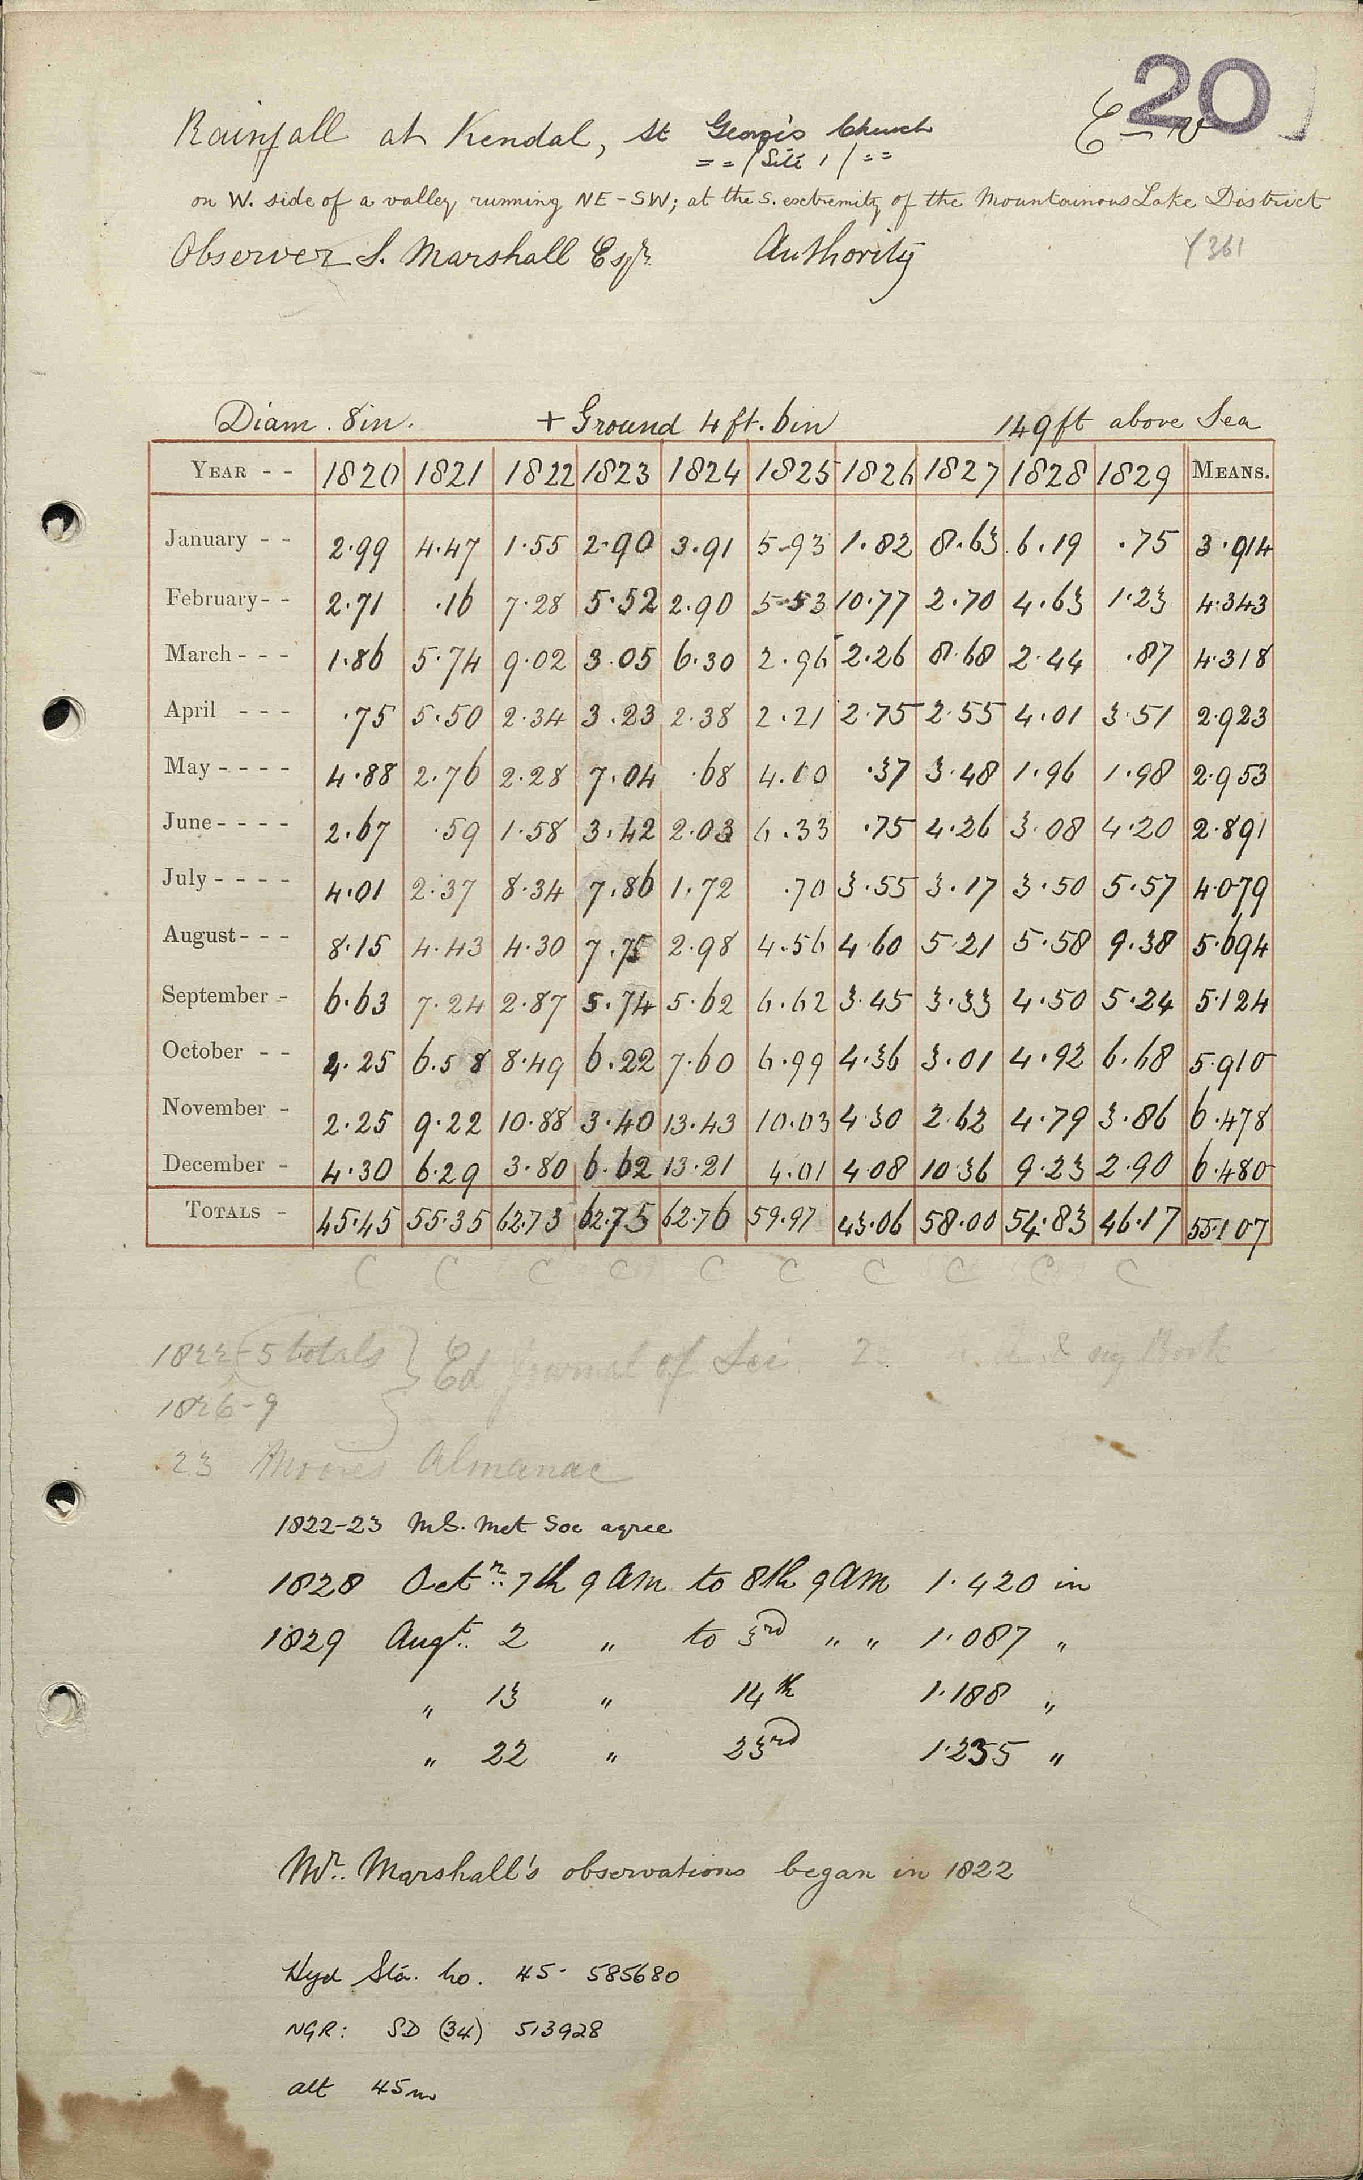 20
Rainfall at Kendal, St George's Church
= = / Site 1 / = =
on W. side of a valley running NE-SW; at the S. extremity of the Mountainous Lake District
Observer S. Marshall Esqr. Authority Y361
Diam. 8in. + Ground 4ft. 6in 149ft above Sea
YEAR - - 1820 1821 1822 1823 1824 1825 1826 1827 1828 1829 MEANS.
January - - 2.99 4.47 1.55 2.90 3.91 5.93 1.82 8.63 6.19 .75 3.914
February - - 2.71 .16 7.28 5.52 2.90 5.53 10.77 2.70 4.63 1.23 4.343
March - - - 1.86 5.74 9.02 3.05 6.30 2.96 2.26 8.68 2.44 .87 4.318
April - - - .75 5.50 2.34 3.23 2.38 2.21 2.75 2.55 4.01 3.51 2.923
May - - - - 4.88 2.76 2.28 7.04 .68 4.10 .37 3.48 1.96 1.98 2.953
June - - - - 2.67 .59 1.58 3.42 2.03 6.33 .75 4.26 3.08 4.20 2.891
July - - - - 4.01 2.37 8.34 7.86 1.72 .70 3.55 3.17 3.50 5.57 4.079
August - - - 8.15 4.43 4.30 7.75 2.98 4.56 4.60 5.21 5.58 9.38 5.694
September - 6.63 7.24 2.87 5.74 5.62 6.62 3.45 3.33 4.50 5.24 5.124
October - - 4.25 6.58 8.49 6.22 7.60 6.99 4.36 3.01 4.92 6.68 5.910
November - 2.25 9.22 10.88 3.40 13.43 10.03 4.30 2.62 4.79 3.86 6.478
December - 4.30 6.29 3.80 6.62 13.21 4.01 4.08 10.36 9.23 2.90 6.480
TOTALS - 45.45 55.35 62.73 62.75 62.76 59.97 43.06 58.00 54.83 46.17 55.107
C C C C C C C C C C
1822-5 totals } Ed Journal of Sci. my Book
1826-9
23 Moores Almanac
1822-23 MS. Met Soc agree
1828 Octr. 7th 9 am to 8th 9 am 1.420 in
1829 Augt. 2 " to 3rd " " 1.087 "
" 13 " 14th 1.188 "
" 22 " 23rd 1.235 "
Mr. Marshall's observations began in 1822
Hyd Sta. no. 45- 585680
NGR: SD (34) 513928
alt 45m